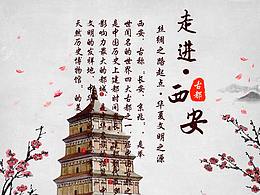 走进·西安
古都
丝绸之路起点·华夏文明之源
西安，古称、长安、京兆，是举
世闻名的世界四大古都之一，
是中国历史上建都时间
影响力最大的都城
文明的发祥地、
天然历史博物馆，的美